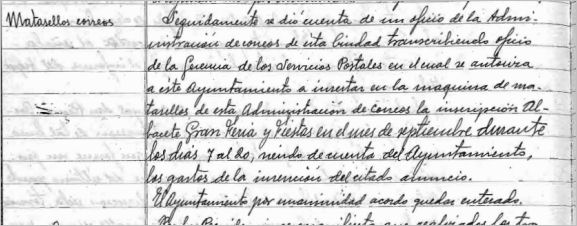 Matasellos correos
Seguidamente se dió cuenta de un oficio de la Admi-
nistración de correos de esta Ciudad transcribiendo oficio
de la Gerencia de los Servicios Postales en el cual se autoriza
a este Ayuntamiento a insertar en la maquina de ma-
tasellos de esta Administración de Correos la inscripción Al-
bacete Gran Feria y Fiestas en el mes de septiembre durante
los dias 7 al 20, siendo de cuenta del Ayuntamiento,
los gastos de la inserción del citado anuncio.
El Ayuntamiento por unanimidad acordo quedar enterado.